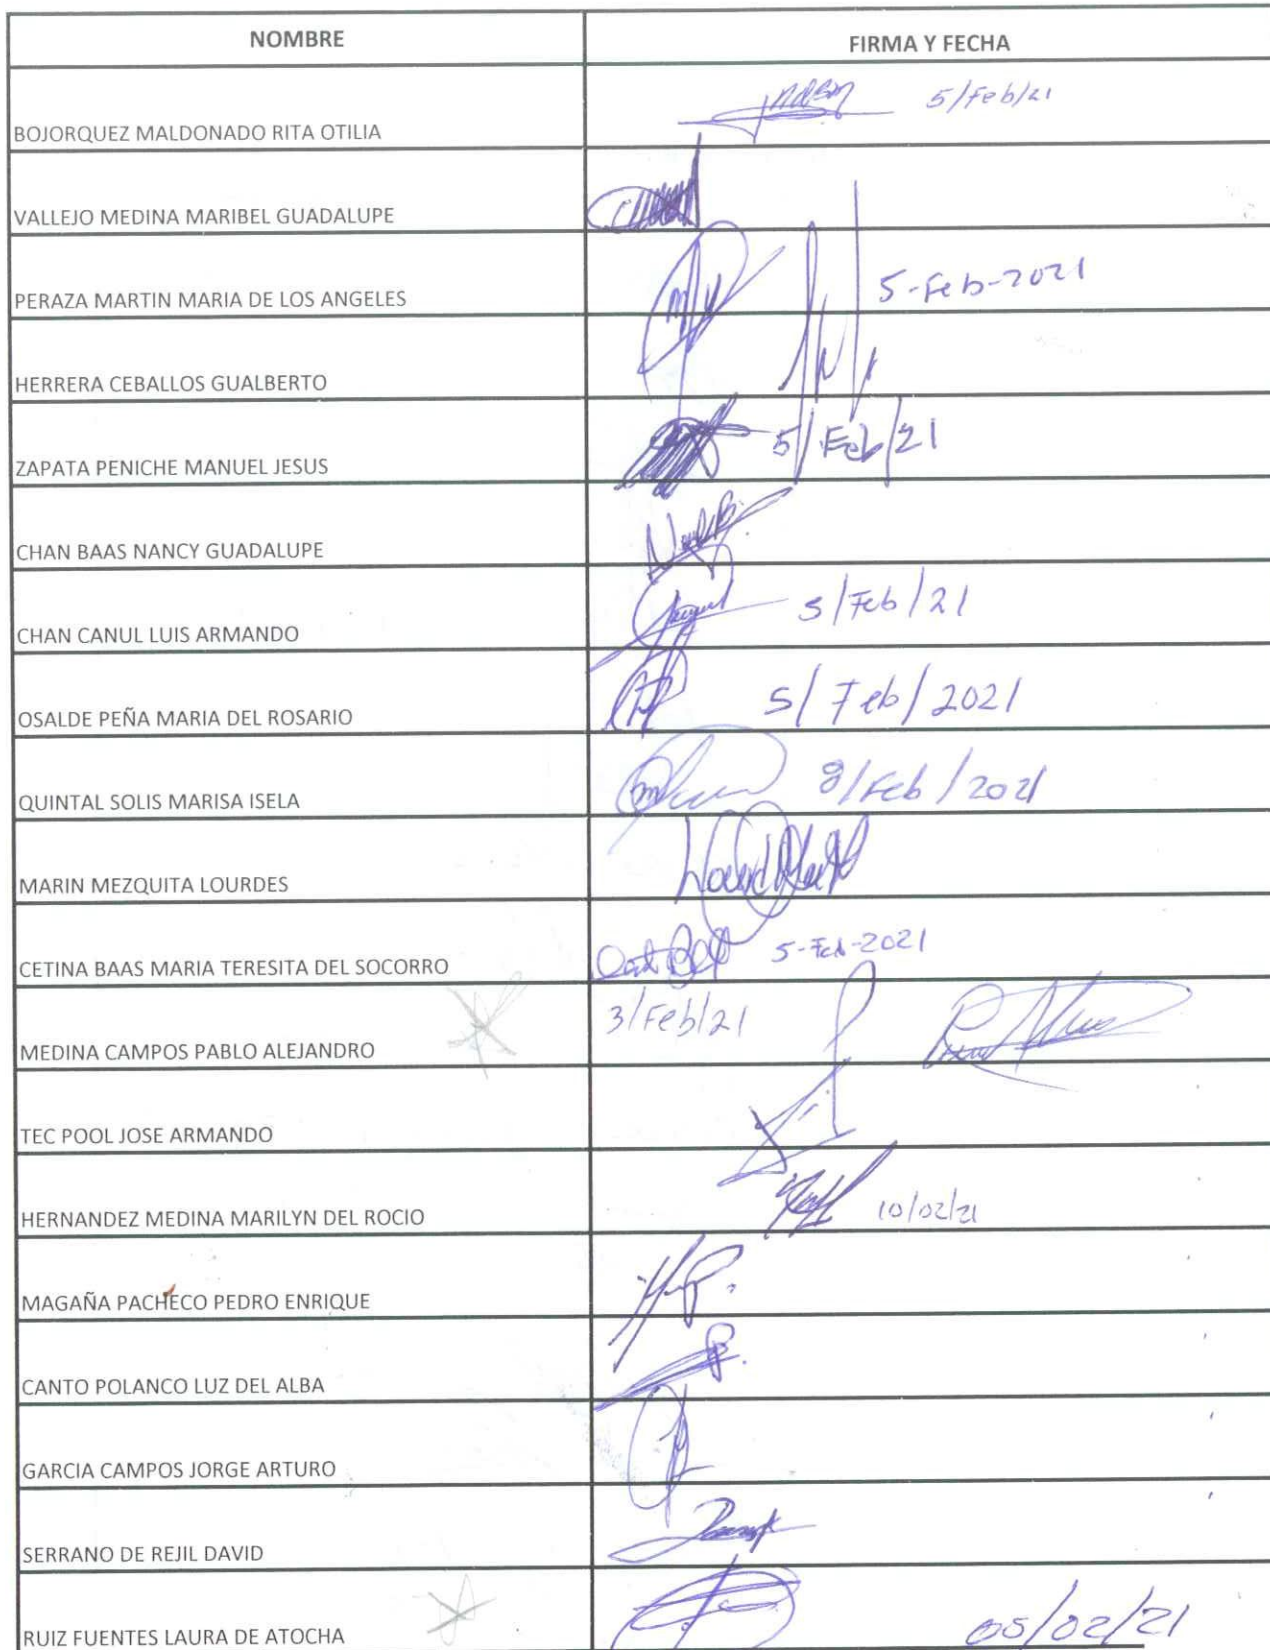 NOMBRE FIRMA Y FECHA
BOJORQUEZ MALDONADO RITA OTILIA 5/Feb/21
VALLEJO MEDINA MARIBEL GUADALUPE
PERAZA MARTIN MARIA DE LOS ANGELES 5-Feb-2021
HERRERA CEBALLOS GUALBERTO
ZAPATA PENICHE MANUEL JESUS 5/Feb/21
CHAN BAAS NANCY GUADALUPE
CHAN CANUL LUIS ARMANDO 5/Feb/21
OSALDE PEÑA MARIA DEL ROSARIO 5/Feb/2021
QUINTAL SOLIS MARISA ISELA 8/Feb/2021
MARIN MEZQUITA LOURDES
CETINA BAAS MARIA TERESITA DEL SOCORRO 5-Feb-2021
MEDINA CAMPOS PABLO ALEJANDRO 3/Feb/21
TEC POOL JOSE ARMANDO
HERNANDEZ MEDINA MARILYN DEL ROCIO 10/02/21
MAGAÑA PACHECO PEDRO ENRIQUE
CANTO POLANCO LUZ DEL ALBA
GARCIA CAMPOS JORGE ARTURO
SERRANO DE REJIL DAVID
RUIZ FUENTES LAURA DE ATOCHA 05/02/21